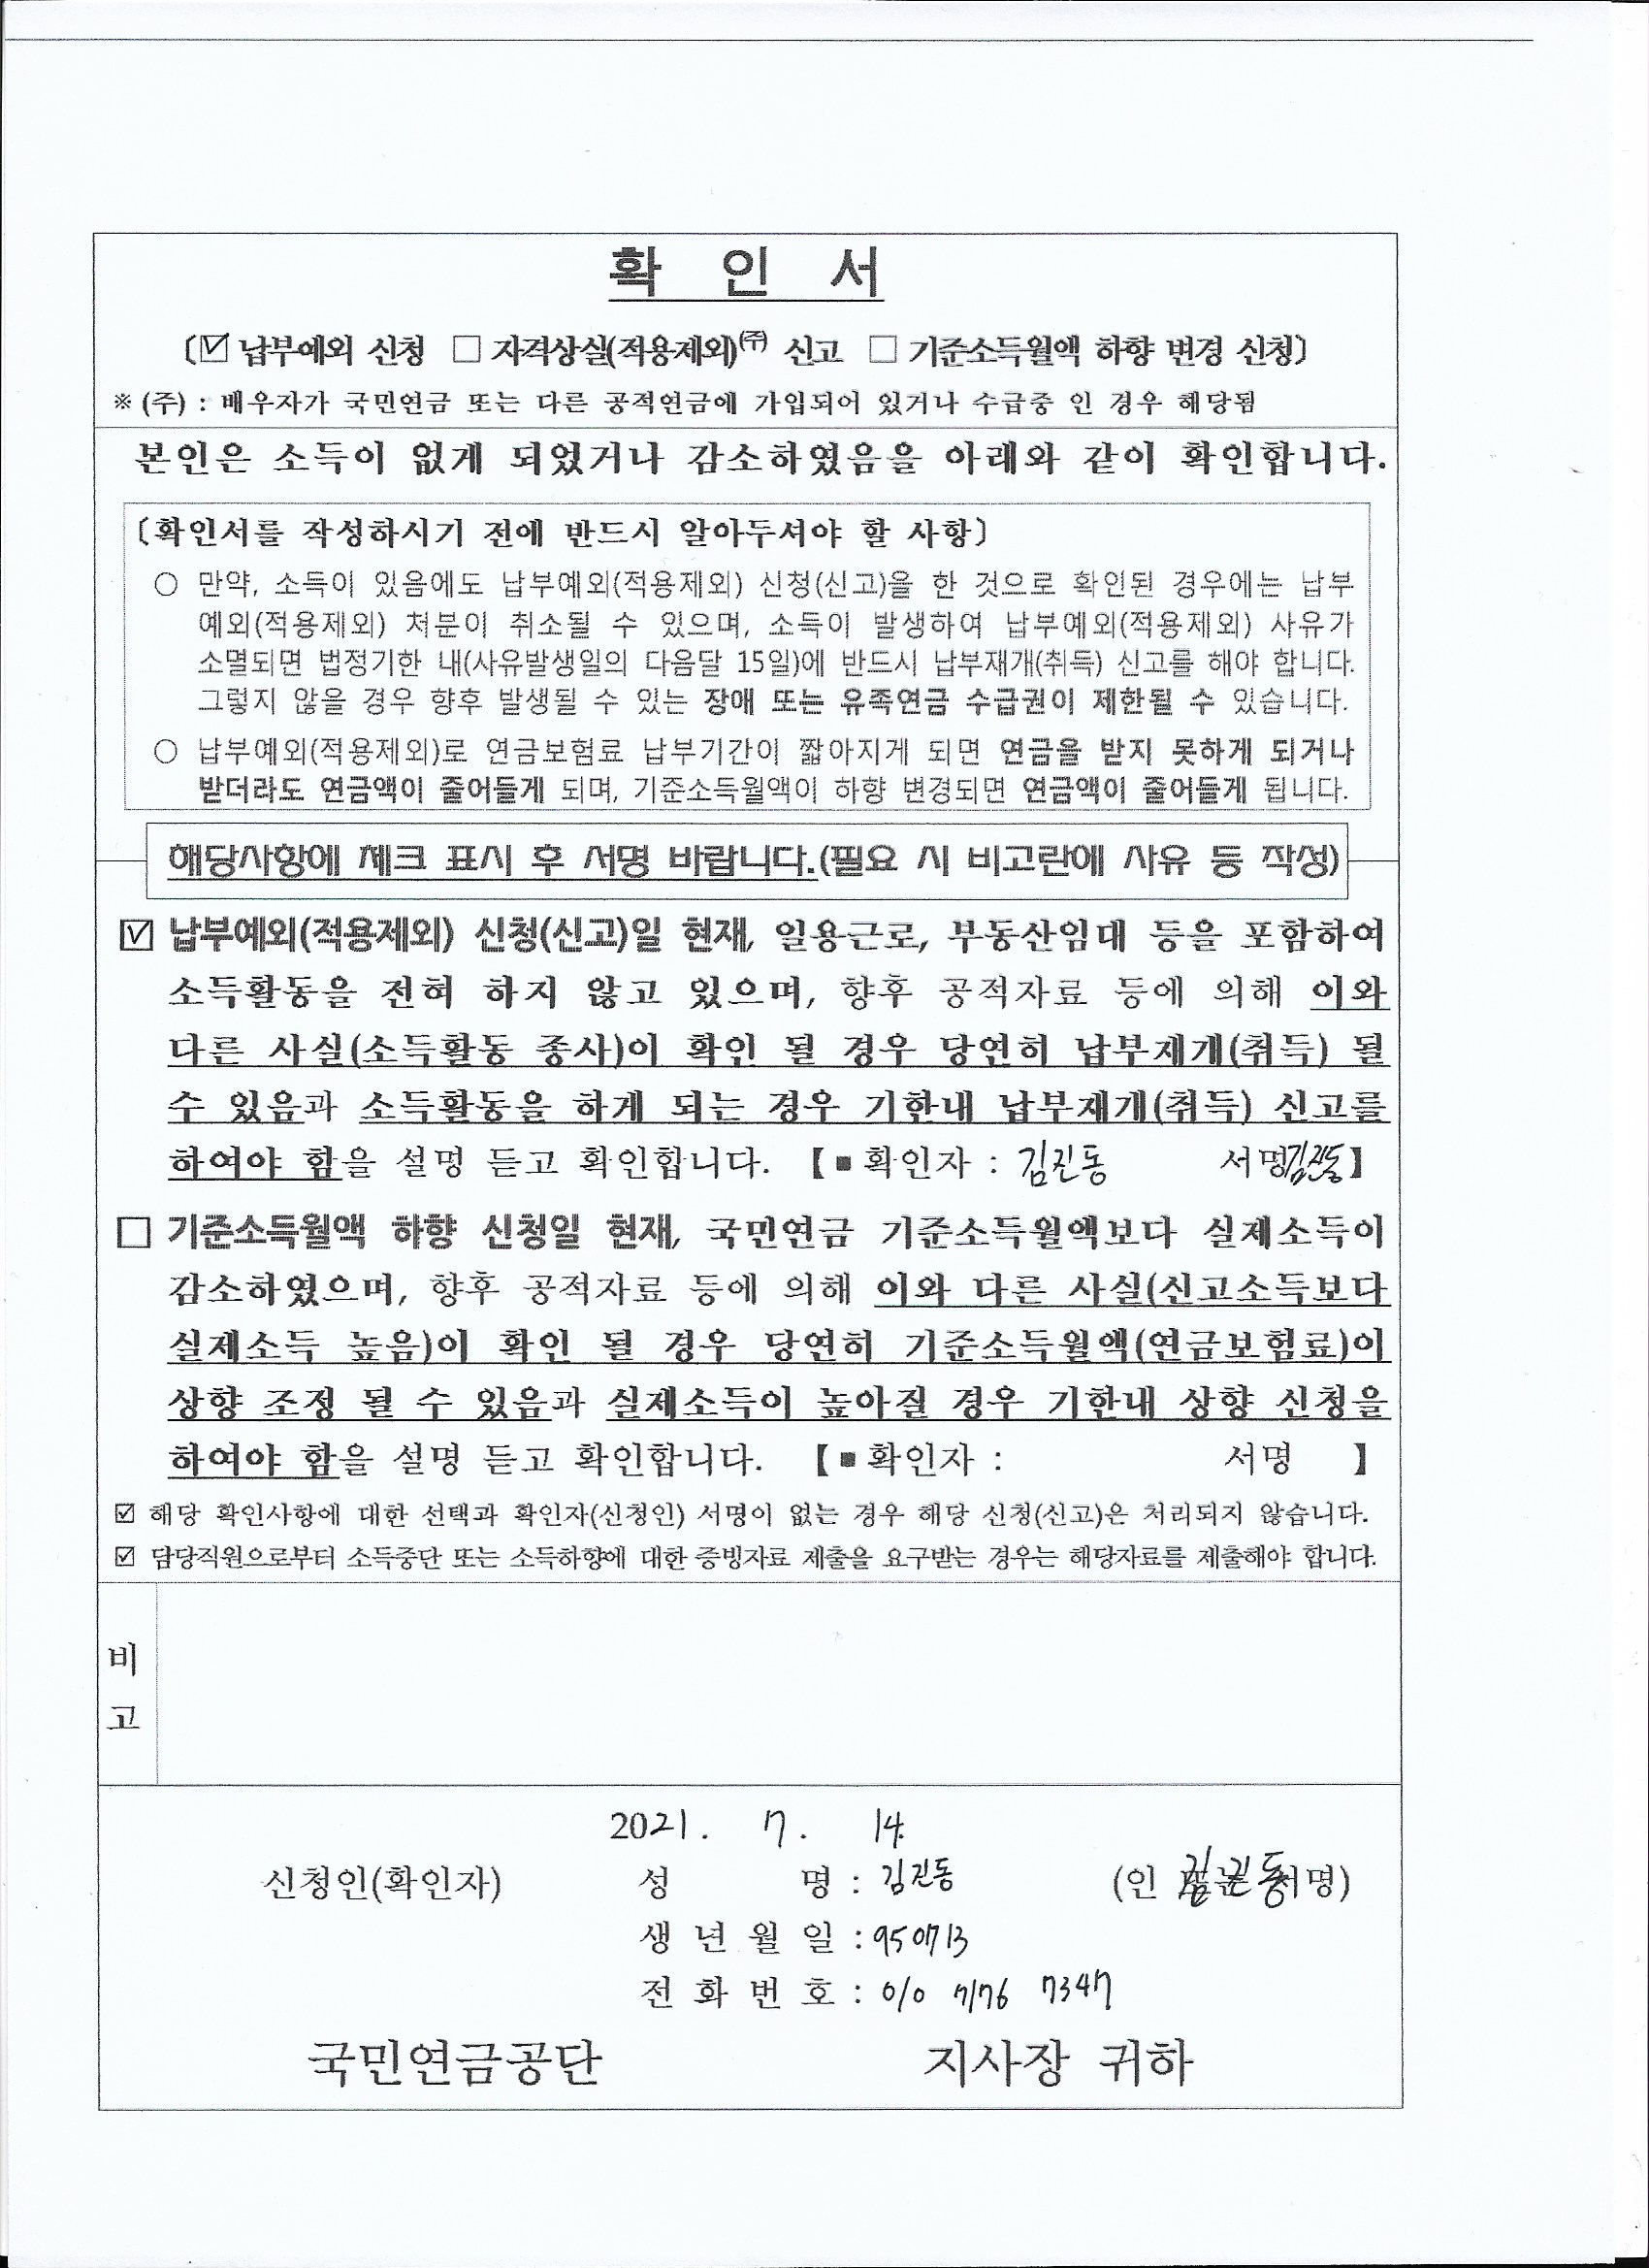 확 인 서
〔☑ 납부예외 신청 □ 자격상실(적용제외)(주) 신고 □ 기준소득월액 하향 변경 신청〕
※ (주) : 배우자가 국민연금 또는 다른 공적연금에 가입되어 있거나 수급중 인 경우 해당됨
본인은 소득이 없게 되었거나 감소하였음을 아래와 같이 확인합니다.
〔확인서를 작성하시기 전에 반드시 알아두셔야 할 사항〕
○ 만약, 소득이 있음에도 납부예외(적용제외) 신청(신고)을 한 것으로 확인된 경우에는 납부
예외(적용제외) 처분이 취소될 수 있으며, 소득이 발생하여 납부예외(적용제외) 사유가
소멸되면 법정기한 내(사유발생일의 다음달 15일)에 반드시 납부재개(취득) 신고를 해야 합니다.
그렇지 않을 경우 향후 발생될 수 있는 장애 또는 유족연금 수급권이 제한될 수 있습니다.
○ 납부예외(적용제외)로 연금보험료 납부기간이 짧아지게 되면 연금을 받지 못하게 되거나
받더라도 연금액이 줄어들게 되며, 기준소득월액이 하향 변경되면 연금액이 줄어들게 됩니다.
해당사항에 체크 표시 후 서명 바랍니다.(필요 시 비고란에 사유 등 작성)
☑ 납부예외(적용제외) 신청(신고)일 현재, 일용근로, 부동산임대 등을 포함하여
소득활동을 전혀 하지 않고 있으며, 향후 공적자료 등에 의해 이와
다른 사실(소득활동 종사)이 확인 될 경우 당연히 납부재개(취득) 될
수 있음과 소득활동을 하게 되는 경우 기한내 납부재개(취득) 신고를
하여야 함을 설명 듣고 확인합니다. 【▪확인자 : 김진동 서명 김진동】
□ 기준소득월액 하향 신청일 현재, 국민연금 기준소득월액보다 실제소득이
감소하였으며, 향후 공적자료 등에 의해 이와 다른 사실(신고소득보다
실제소득 높음)이 확인 될 경우 당연히 기준소득월액(연금보험료)이
상향 조정 될 수 있음과 실제소득이 높아질 경우 기한내 상향 신청을
하여야 함을 설명 듣고 확인합니다. 【▪확인자 : 서명 】
☑ 해당 확인사항에 대한 선택과 확인자(신청인) 서명이 없는 경우 해당 신청(신고)은 처리되지 않습니다.
☑ 담당직원으로부터 소득중단 또는 소득하향에 대한 증빙자료 제출을 요구받는 경우는 해당자료를 제출해야 합니다.
비
고
2021. 7. 14.
신청인(확인자) 성 명 : 김진동 (인 김진동 서명)
생 년 월 일 : 950713
전 화 번 호 : 010 7176 7347
국민연금공단 지사장 귀하